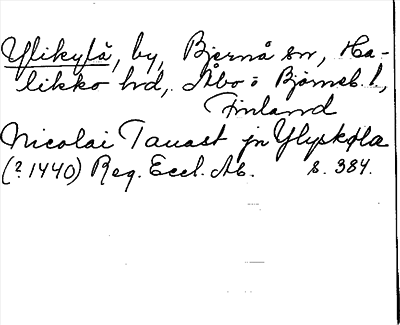 Ylikylä, by, Bjernå sn, Ha-
likko hd, Åbo o Björneb. l,
Finland
Nicolai Tauast jn Ylyskylæ
(? 1440) Reg. Eccl. Ab. s. 384.